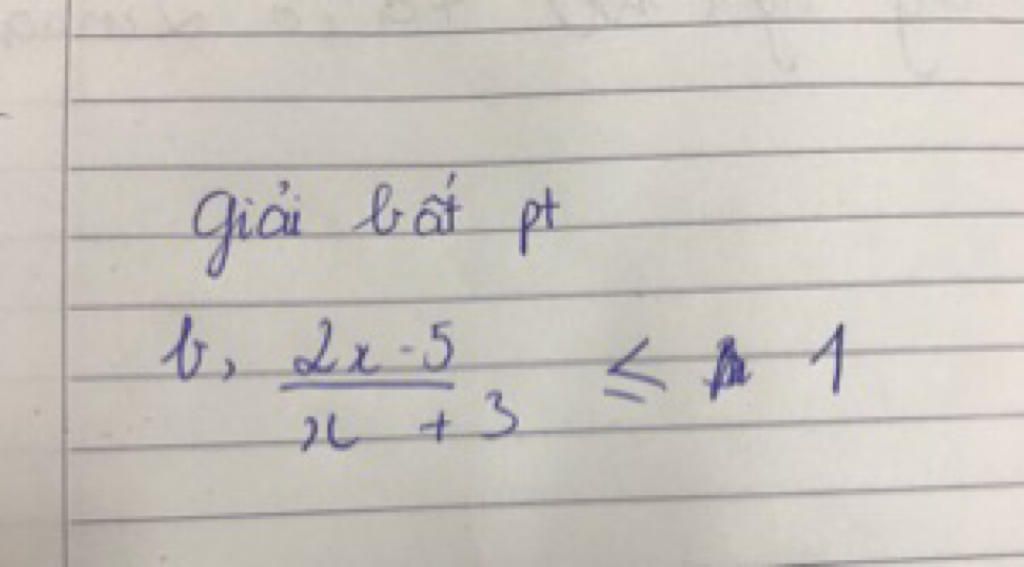 Giải bất pt
b, 2x - 5
x + 3 ≤ 1